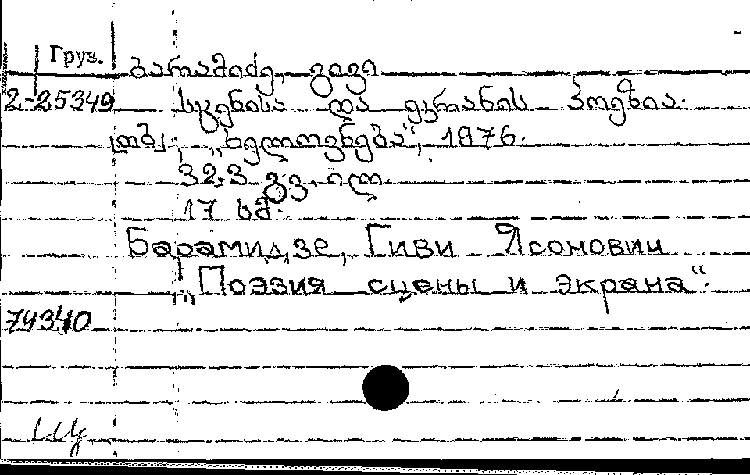 Груз.
ბარამიძე, გივი
2-25349 სცენისა და ეკრანის პოეზია.
თბ., „ხელოვნება“, 1976.
323 გვ. ილ.
17 სმ.
Барамидзе, Гиви Ясонович
„Поэзия сцены и экрана“.
74340